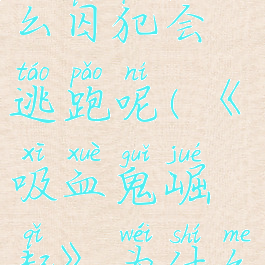 么囚犯会
táo pǎo ní
逃跑呢(《
xī xuè guǐ jué
吸血鬼崛
qǐ wéi shí me
起》为什么